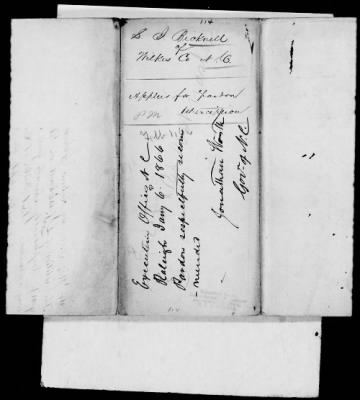 114
S. J. Bicknell
of
Wilkes Co N.C.
Applies for Pardon
P.M.
Executive Office N C
Raleigh Jany 6. 1866
Pardon respectfully recom
-mended
Jonathan Worth
Gov of N.C.
114